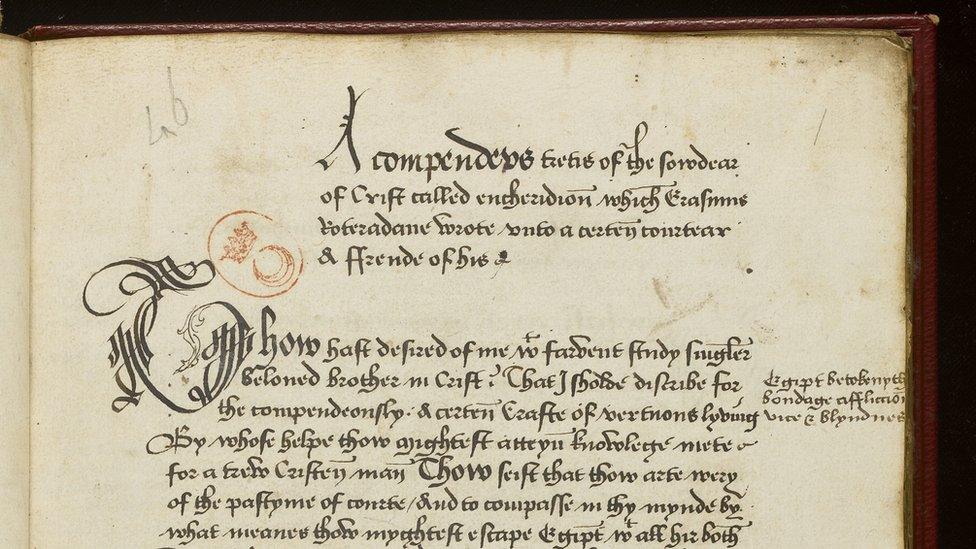 A compendeus tretis of the sowdear
of Crist called encheridion which Erasmus
Roteradane wrote unto a certen courtear
& ffrende of his
Thow hast desired of me wt farvent study singler
beloved brother in Crist. That I sholde discribe for
the compendeously. A certen Crafte of vertuous lyving
By whose helpe thow mightest atteyn knowlege mete
for a trew Cristen man Thow seist that thow arte wery
of the pastyme of courte / And to compasse in thy mynde by
what meanes thow myghtest escape Egipt wt all hir both
Egipt betokenyth
bondage affliction
vice & blyndnes